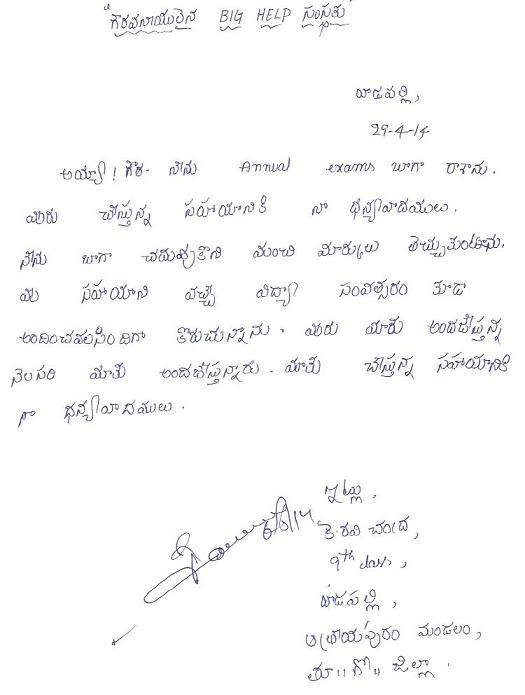 "గౌరవనీయులైన BIG HELP సంస్థకు"
వాడపల్లి,
29-4-14
అయ్యా! గౌ౹౹ నేను Annual exams బాగా రాశాను.
మీరు చేస్తున్న సహాయానికి నా ధన్యవాదములు.
నేను బాగా చదువుకొని మంచి మార్కులు తెచ్చుకుంటాను.
మీ సహాయాన్ని వచ్చే విద్యా సంవత్సరం కూడా
అందించవలసిందిగా కోరుచున్నాను. మీరు మాకు అందజేస్తున్న
నెలసరి మాకు అందజేస్తున్నారు. మాకు చేస్తున్న సహాయానికి
నా ధన్యవాదములు.
ఇట్లు,
కె. రవి చంద్ర,
9th class,
వాడపల్లి,
ఆత్రేయపురం మండలం,
తూ౹౹గో౹౹ జిల్లా.